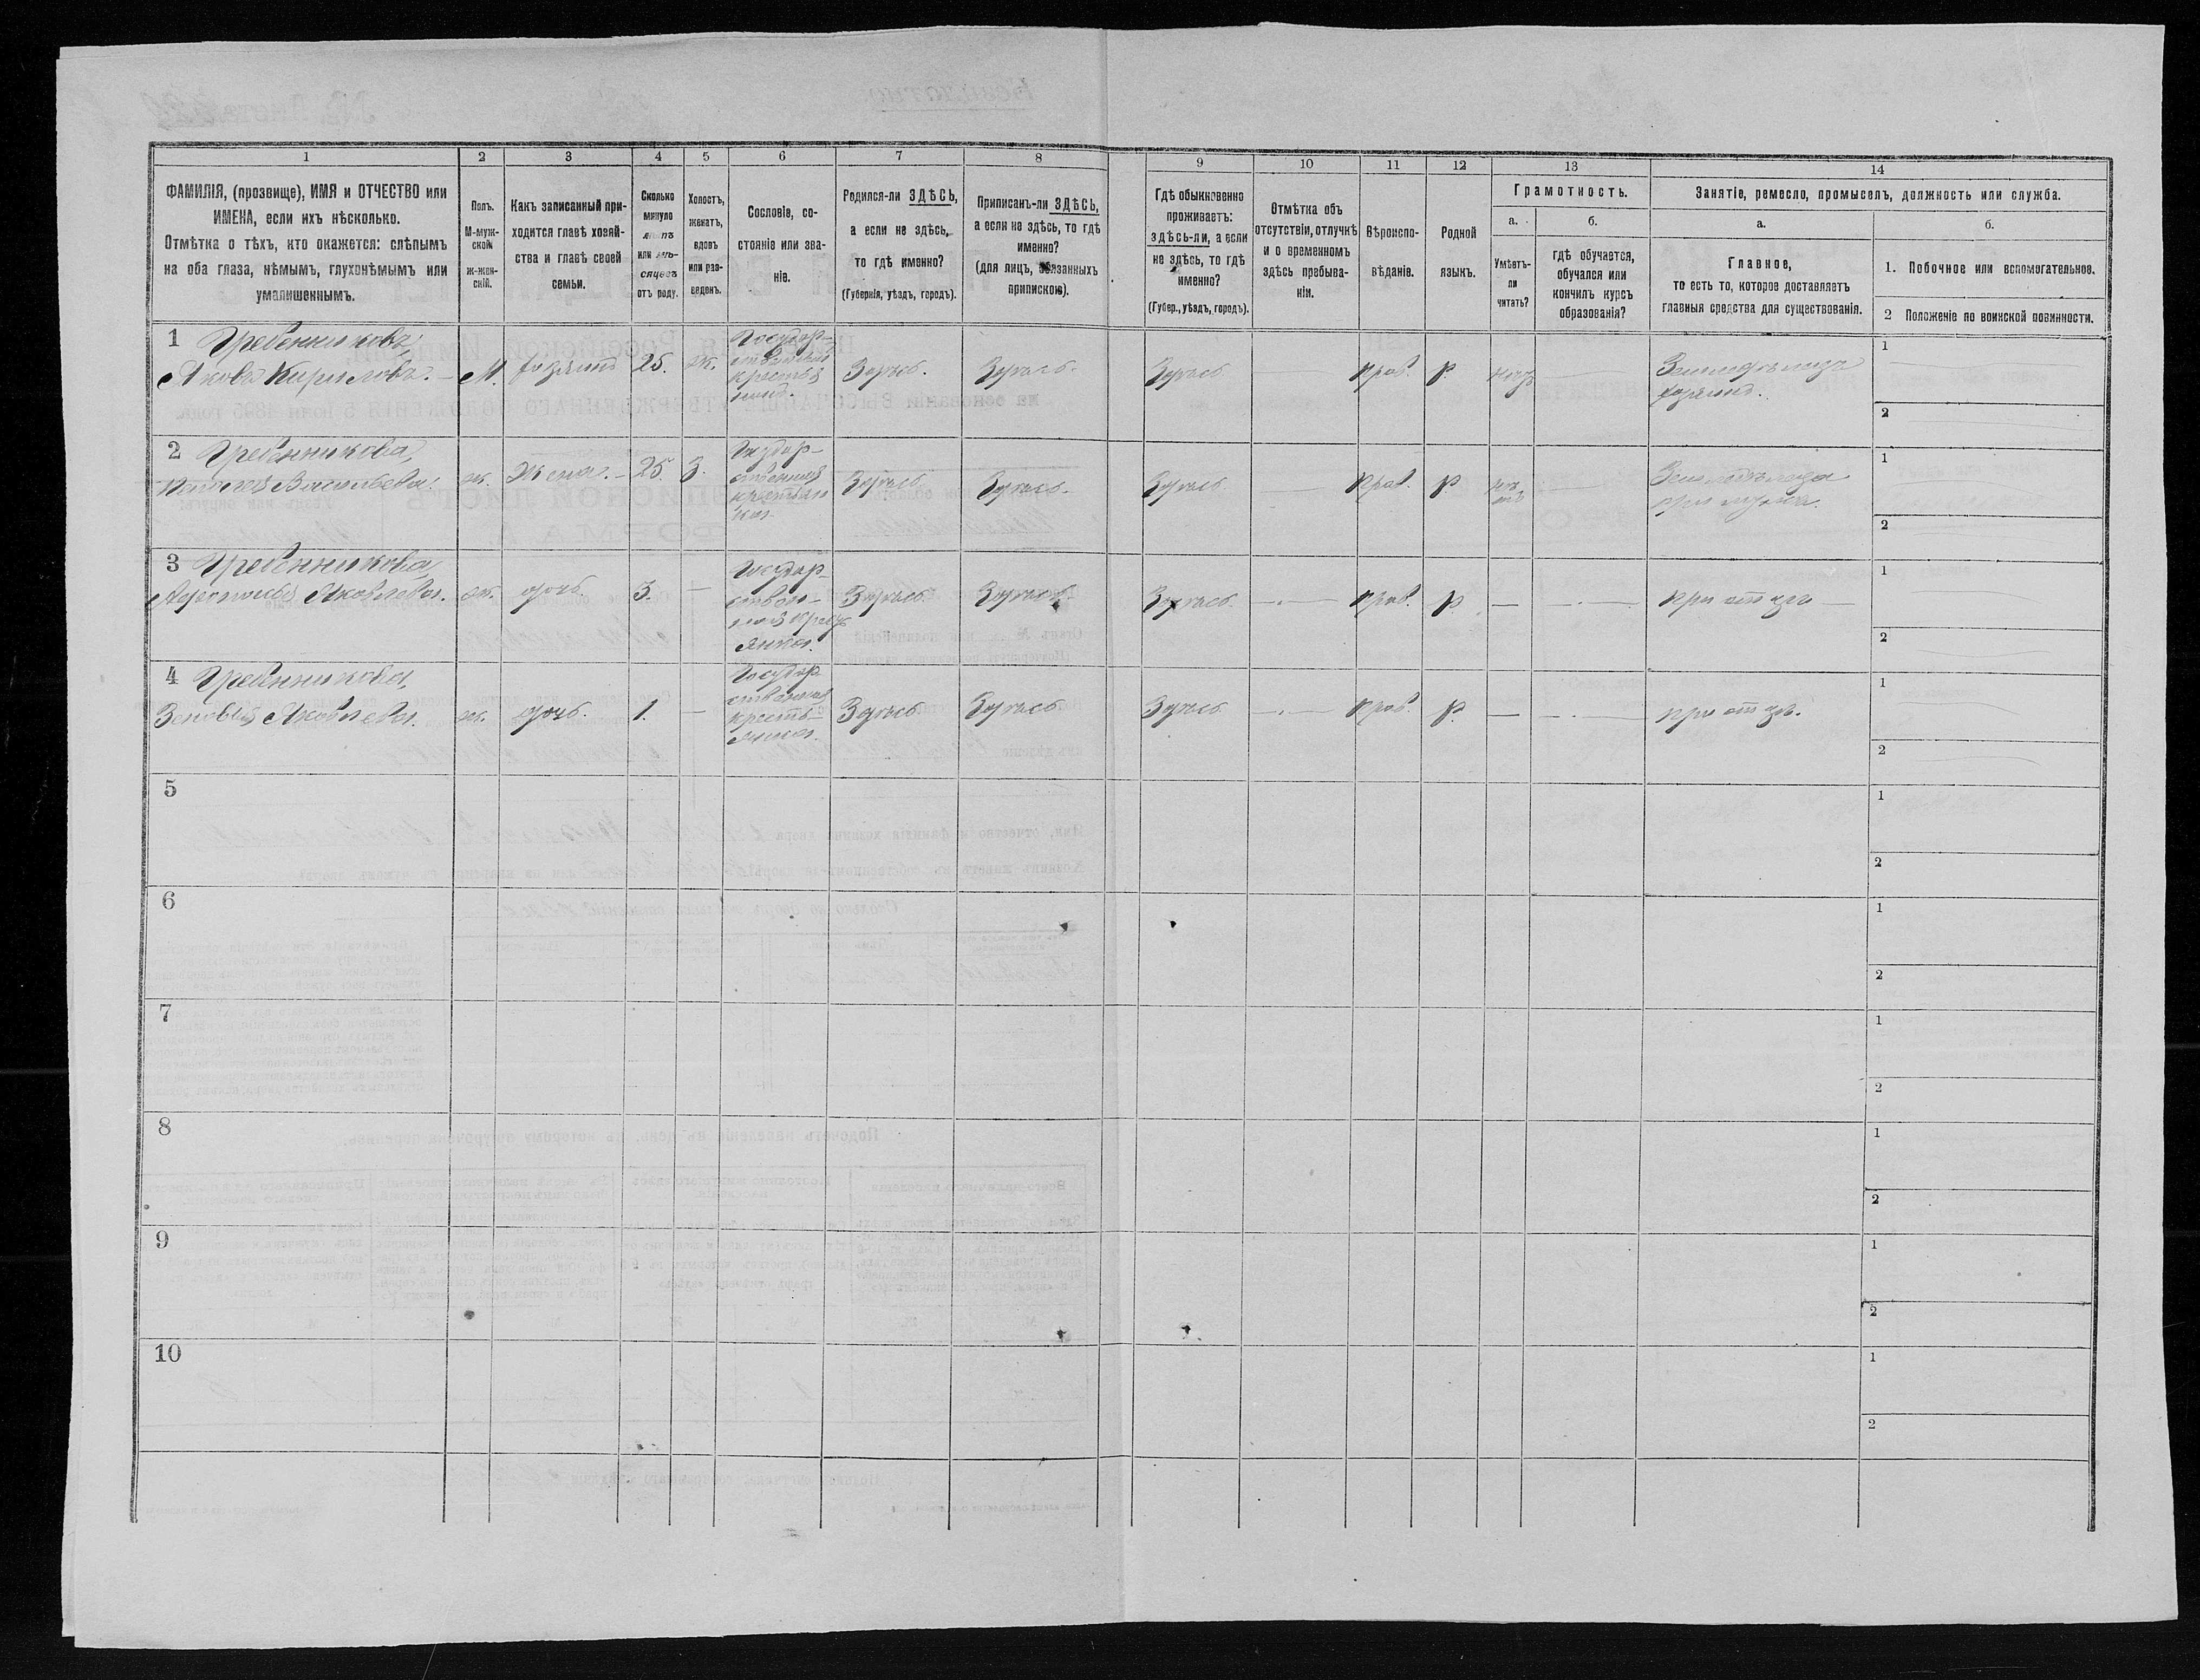 1 2 3 4 5 6 7 8 9 10 11 12 13 14
ФАМИЛІЯ, (прозвище), ИМЯ и ОТЧЕСТВО или
ИМЕНА, если ихъ нѣсколько.
Отмѣтка о тѣхъ, кто окажется: слѣпымъ
на оба глаза, нѣмымъ, глухонѣмымъ или
умалишеннымъ.
Полъ.
М-муж-
ской
ж-жен-
скій.
Какъ записанный при-
ходится главѣ хозяй-
ства и главѣ своей
семьи.
Сколько
минуло
лѣтъ
или мѣ-
сяцевъ
отъ роду.
Холостъ,
женатъ,
вдовъ
или раз-
веденъ.
Сословіе, со-
стояніе или зва-
ніе.
Родился-ли ЗДѢСЬ,
а если не здѣсь,
то гдѣ именно?
(Губернія, уѣздъ, городъ).
Приписанъ-ли ЗДѢСЬ,
а если не здѣсь, то гдѣ
именно?
(для лицъ, обязанныхъ
припискою).
Гдѣ обыкновенно
проживаетъ:
здѣсь-ли, а если
не здѣсь, то гдѣ
именно?
(Губер., уѣздъ, городъ).
Отмѣтка объ
отсутствіи, отлучкѣ
и о временномъ
здѣсь пребыва-
ніи.
Вѣроиспо-
вѣданіе.
Родной
языкъ.
Грамотность.
а. б.
Умѣетъ-
ли
читать?
гдѣ обучается,
обучался или
кончилъ курсъ
образованія?
Занятіе, ремесло, промыселъ, должность или служба.
а. б.
Главное,
то есть то, которое доставляетъ
главныя средства для существованія.
1. Побочное или вспомогательное.
2 Положеніе по воинской повинности.
1 Гребенниковъ,
Яковъ Кириловъ. — М. хозяинъ 25. ж.
Государ-
ственный
крестья
нинъ.
Здѣсь. Здѣсь. Здѣсь — прав. Р. нѣтъ —
Земледѣлецъ
хозяинъ.
1
2
2 Гребенникова,
Васильева. ж. Жена. — 25. З.
Государ-
ственная
крестьян
ка
Здѣсь Здѣсь. Здѣсь — прав. Р. нѣ
тъ —
при мужѣ.
1
2
3 Гребенникова,
Яковлева. ж. дочь. 3. —
Государ-
ствен-
ная крест
янка.
Здѣсь. Здѣсь. Здѣсь. — прав. Р. — — при отцѣ —
1
2
4 Гребенникова,
Яковлева. ж. дочь. 1. —
Государ
ственная
кресть-
янка.
Здѣсь Здѣсь Здѣсь — прав. Р. — — при отцѣ.
1
2
5
1
2
6
1
2
7
1
2
8
1
2
9
1
2
10
1
2